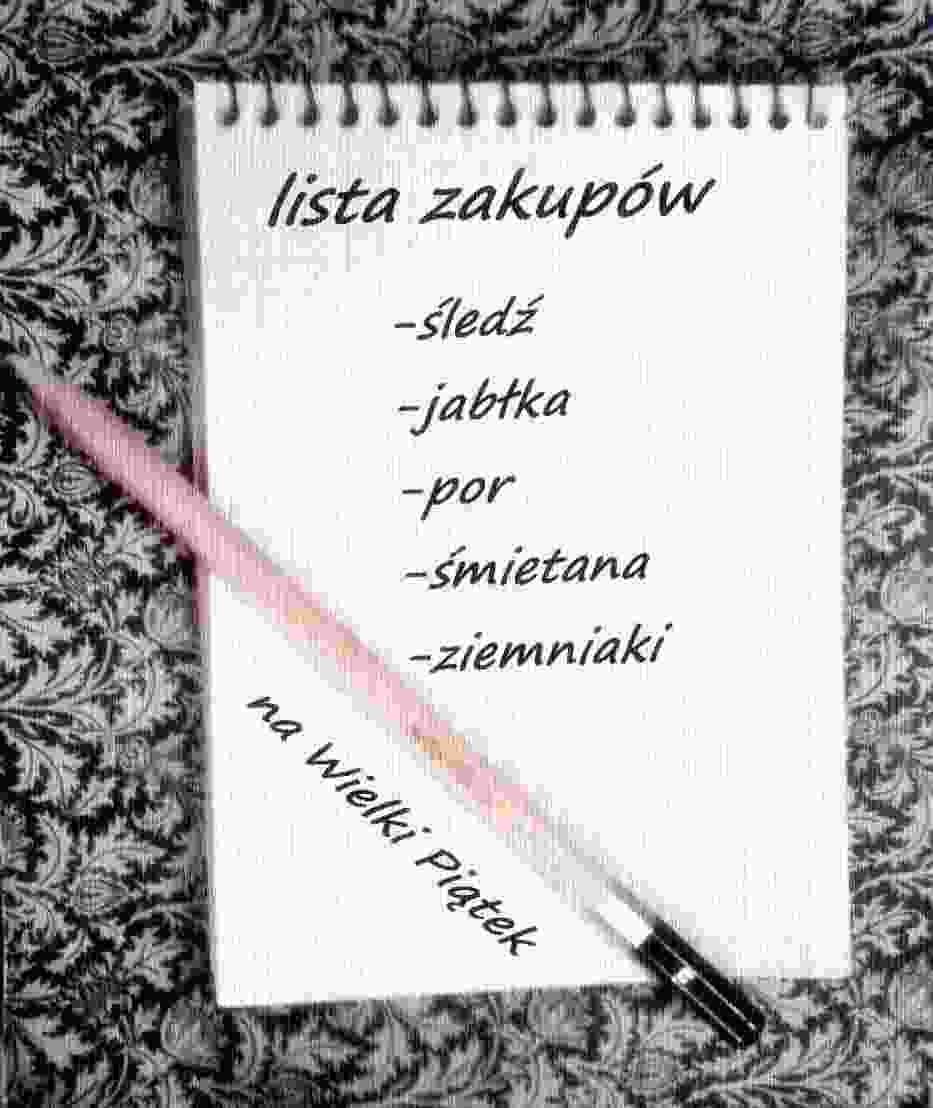 lista zakupów
-śledź
-jabłka
-por
-śmietana
-ziemniaki
na Wielki Piątek